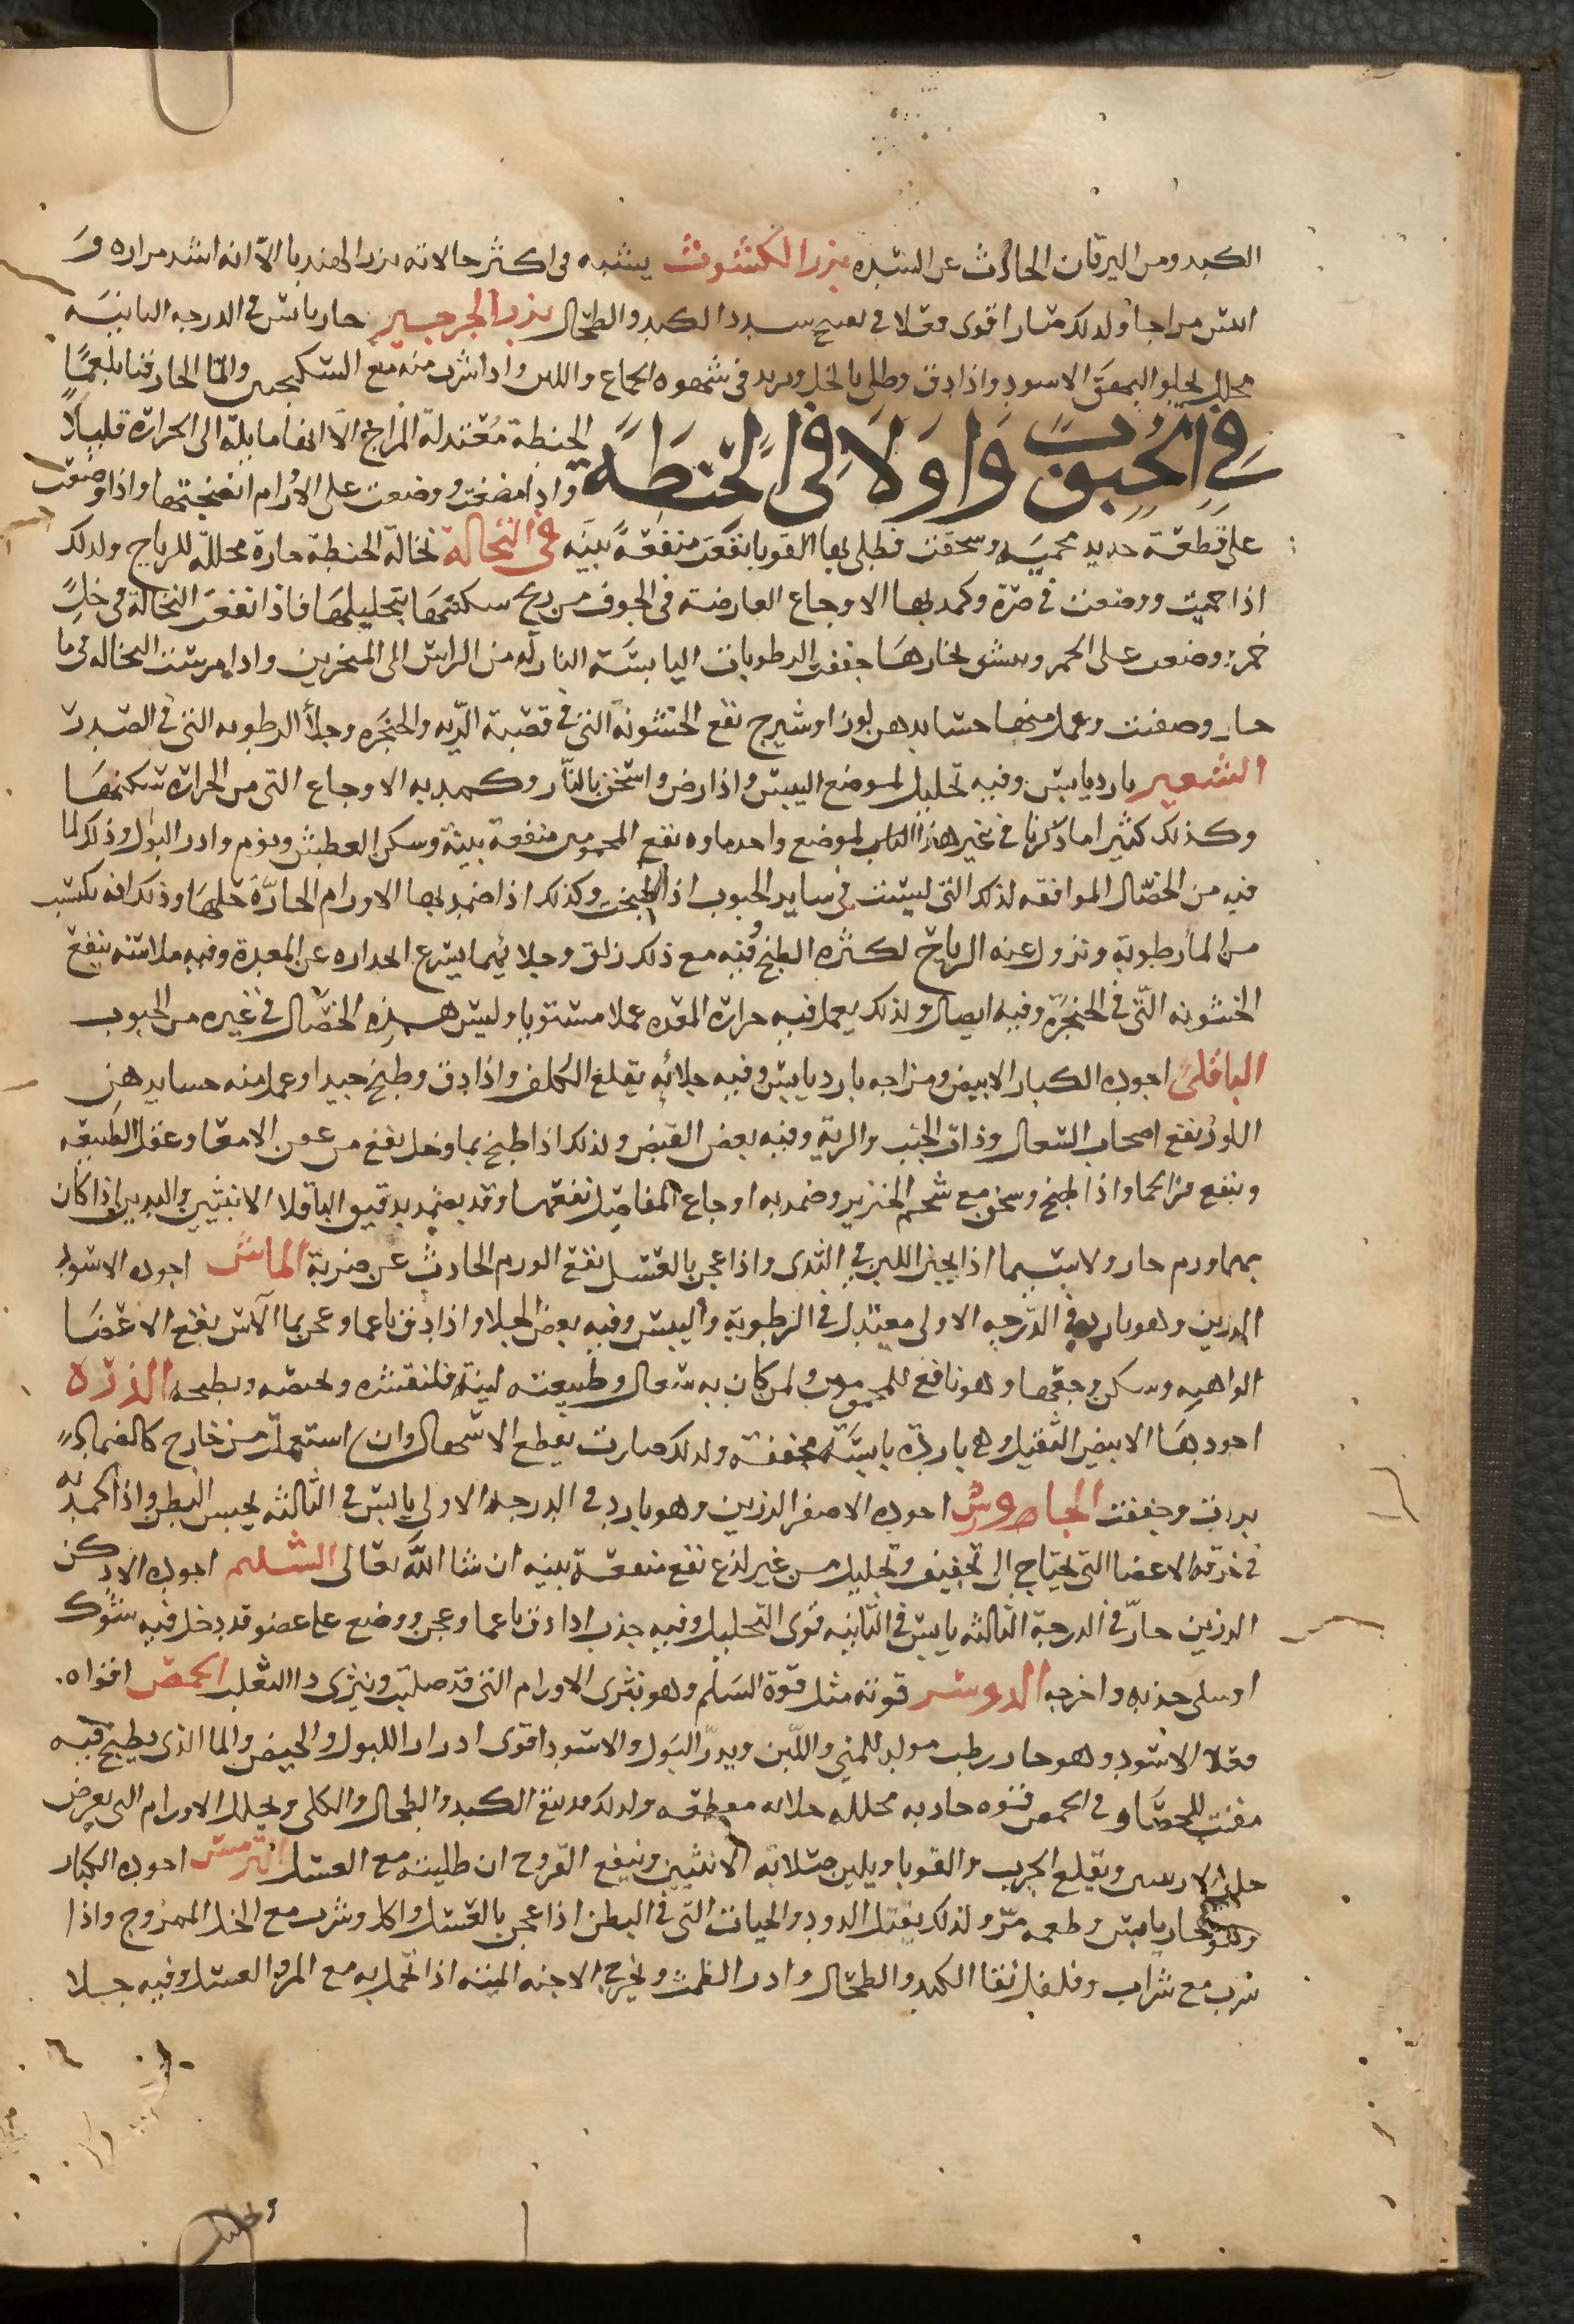 الكبد ومن اليرقان الحادث عن السدد بزر الكشوث يشبه فى اكثر حالاته بزر الهندبا الا انه اشد مراره و
ايبس مزاجا ولذلك صار اقوى فعلا فى تفتيح سدد الكبد والطحال بزر الجرجير حار يابس فى الدرجه الثانيه
محلل يجلو البهق الاسود واذا دق وطلى بالخل ويزيد فى شهوه الجماع واللبن واذا شرب منه مع السكنجبين والما الحار قيا بلغما
فى الحبوب واولا فى الحنطة الحنطة معتدلة المزاج الا انها مايلة الى الحرارة قليلا
واذا مضغت ووضعت على الاورام انضجتها واذا وضعت
على قطعة حديد محميه وسحقت فطلى بها القوبا نفعت منفعة بينه فى النخالة نخالة الحنطة حارة محللة للرياح ولذلك
اذا حميت ووضعت فى صرة وكمد بها الاوجاع العارضة فى الجوف من ريح سكنتها بتحليلها فاذا نقعت النخالة فى خل
خمر ووضعت على الجمر وينشق بخارها جففت الرطوبات اليابسة النازله من الراس الى المنخرين واذا مرست النخاله فى ما
حار وصفيت وعمل منها حسا بدهن لوز او شيرج نفع الخشونة التى فى قصبة الريه والحنجره وجلا الرطوبه التى فى الصدر
الشعير بارد يابس وفيه تحليل لموضع اليبس واذا رض واسخن بالنار وكمد به الاوجاع التى من الحرارة سكنها
وكذلك كثيرا ما ذكرنا فى غير هذا الكتاب لموضع واحد ماوه نفع المحمومين منفعة بينة وسكن العطش ونوم وادر البول وذلك لما
فيه من الخصال الموافقه لذلك التى ليست فى ساير الحبوب اذا طبخت وكذلك اذا ضمد بها الاورام الحارة حللها وذلك انه يكتسب
من الما رطوبة وتزول عنه الرياح لكثره الطبخ وفيه مع ذلك زلق وجلا بهما يسرع انحداره عن المعدة وفيه ملاسه ينفع
الخشونه التى فى الحنجرة وفيه ايصال ولذلك يعمل فيه حرارة المعده عملا مستويا وليس هذه الخصال فى غيره من الحبوب
الباقلى اجوده الكبار الابيض ومزاجه بارد يابس وفيه جلا به يقلع الكلف واذا دق وطبخ جيدا وعمل منه حسا بدهن
اللوز نفع اصحاب السعال وذات الجنب والرية وفيه بعض القبض ولذلك اذا طبخ بما وخل نفع من الامعا وعقل الطبيعه
وينفع من الحما واذا طبخ وسخن مع شحم الخنزير وضمد به اوجاع المفاصل نفعها وقد يضمد بدقيق الباقلا الانثيين والثديين اذا كان
بهما ورم حار ولا سيما اذا تجبن اللبن فى الثدى واذا عجن بالعسل نفع الورم الحادث عن ضربة الماش اجوده الاسود
الرزين وهو بارد فى الدرجه الاولى معتدل فى الرطوبة واليبس وفيه بعض الجلا واذا دق ناعما وعجن بما الآس نفع الاعضا
الواهيه وسكن وجعها وهو نافع للمحمومين ولمن كان به سعال وطبيعته لينة فلنقشره ويطبخه الذرة
اجودها الابيض الثقيل وهى باردة يابسة مجففة ولذلك صارت يقطع الاسهال وان استعملت من خارج كالضماد
بردت وجففت الجاورس اجوده الاصفر الرزين وهو بارد فى الدرجه الاولى يابس فى الثالثه يحبس البطن واذا كمد به
فى خرقه الاعضا التى تحتاج الى تجفيف وتحليل من غير لذع نفع منفعة بينه ان شا الله تعالى الشيلم اجوده الادكن
الرزين حار فى الدرجة الثالثه يابس فى الثانيه قوى التحليل وفيه جذب اذا دق ناعما وعجن ووضع على عضو قد دخل فيه شوك
او سلى جذبه واخرجه الدوسر قوته مثل قوة الشيلم وهو يبرى الاورام التى قد صلبت ويبرى دا الثعلب الحمص اقواه
فعلا الاسود وهو حار رطب مولد للمنى واللبن ويدر البول والاسود اقوى ادرارا للبول والحيض والما الذى يطبخ فيه
مفتت للحصاو فى الحمص قوه حاده محلله جلايه مقطعه ولذلك قد ينقى الكبد والطحال والكلى ويحلل الاورام التى يعرض
ويقلع الجرب والقوبا ويلين صلابه الانثيين وينفع القروح ان طليته مع العسل الترمس اجوده الكبار
وهو حار يابس وطعمه مر ولذلك يقتل الدود والحيات التى فى البطن اذا عجن بالعسل واكل وشرب مع الخل الممزوج واذا
شرب مع شراب وفلفل نقا الكبد والطحال وادر الطمث ويخرج الاجنه الميته اذا تحمل به مع المر والعسل وفيه جلا